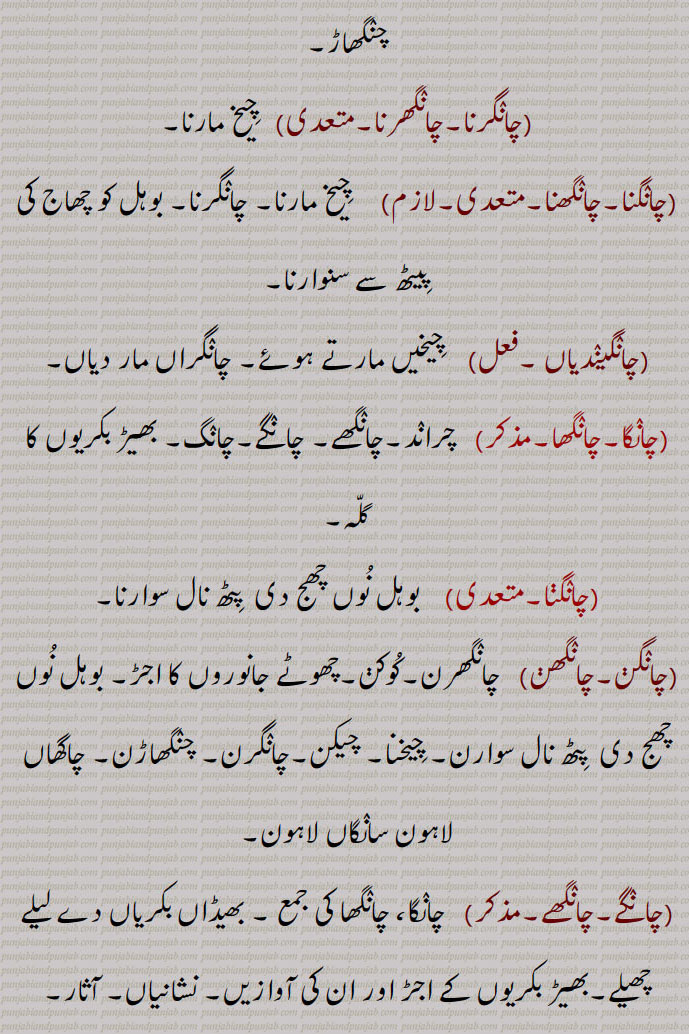 چنٛگھاڑ۔
(چانٛگرنا۔چانٛگھرنا۔متعدی) چِیخ مارنا۔
(چانٛگنا۔چانٛگھنا۔متعدی۔لازم) چِیخ مارنا۔ چانٛگرنا۔ بوہل کو چھاج کی
پِیٹھ سے سنوارنا۔
(چانٛگینٛدیاں ۔فعل) چِیخیں مارتے ہوئے۔ چانٛگراں مار دیاں۔
(چانٛگا۔چانٛگھا۔مذکر) چرانٛد۔چانٛگھے۔ چانٛگے۔چانٛگ۔ بھیڑ بکریوں کا
گلّہ۔
(چانٛگنا۔متعدی) بوہل نُوں چھج دی پِٹھ نال سوارنا۔
(چانٛگن۔چانٛگھن) چانٛگھرن۔کُوکن۔چھوٹے جانوروں کا اجڑ۔ بوہل نُوں
چھج دی پِٹھ نال سوارن۔چِیخنا۔ چیکن۔چانٛگرن۔ چنٛگھاڑن۔ چاگھاں
لاہون سانٛگاں لاہون۔
(چانٛگے۔چانٛگھے۔مذکر) چانٛگا، چانٛگھا کی جمع ۔ بھیڈاں بکریاں دے لیلے
چھیلے۔بھیڑ بکریوں کے اجڑ اور ان کی آوازیں۔ نشانیاں۔ آثار۔